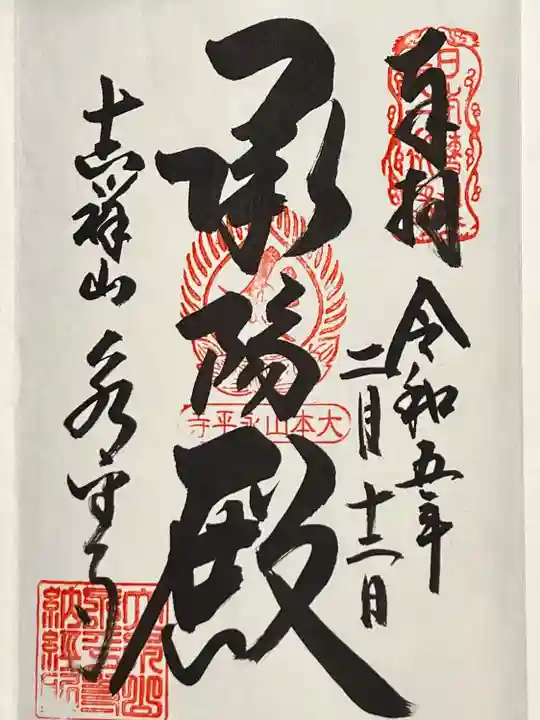 奉拝
令和五年
二月十二日
承陽殿
大本山永平寺
吉祥山永平寺